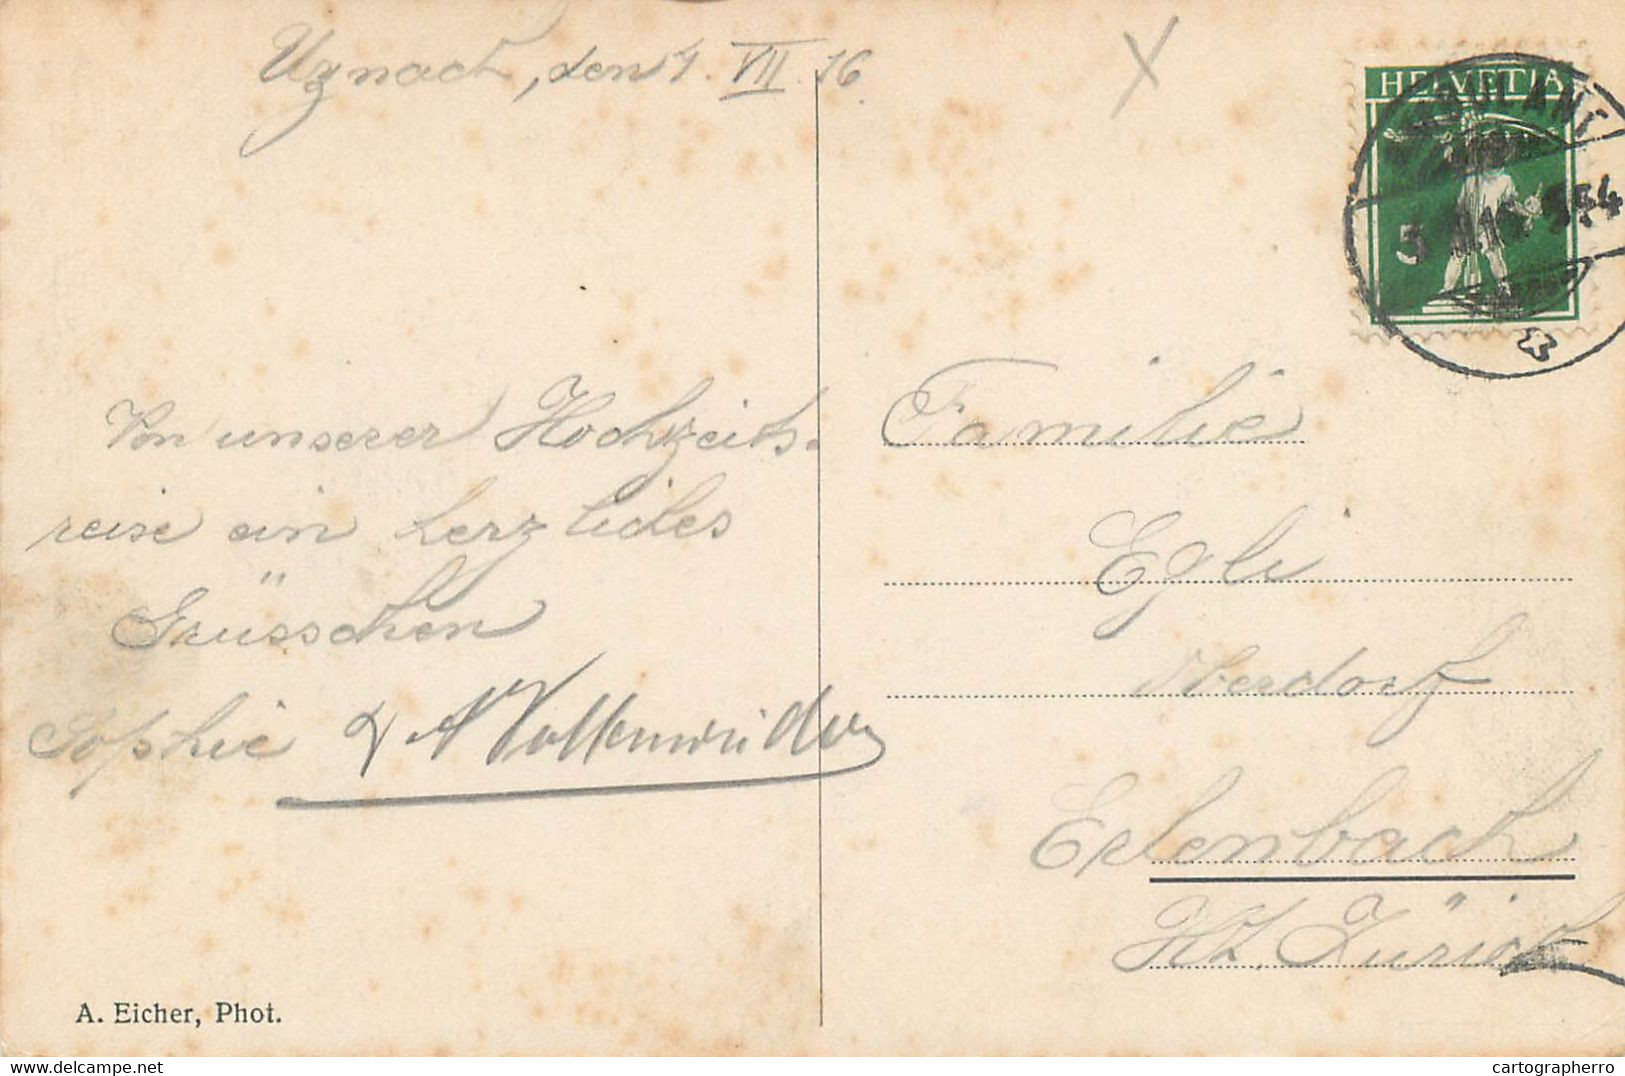 Uznach, den 1. VII. 16.
HELVETIA
Von unserer Hochzeits-
reise ein herzliches
Grüsschen
Sophie & A Vollenweider
Familie
Egli
Oberdorf
Erlenbach
Kt. Zürich
A. Eicher, Phot.
cartographerro